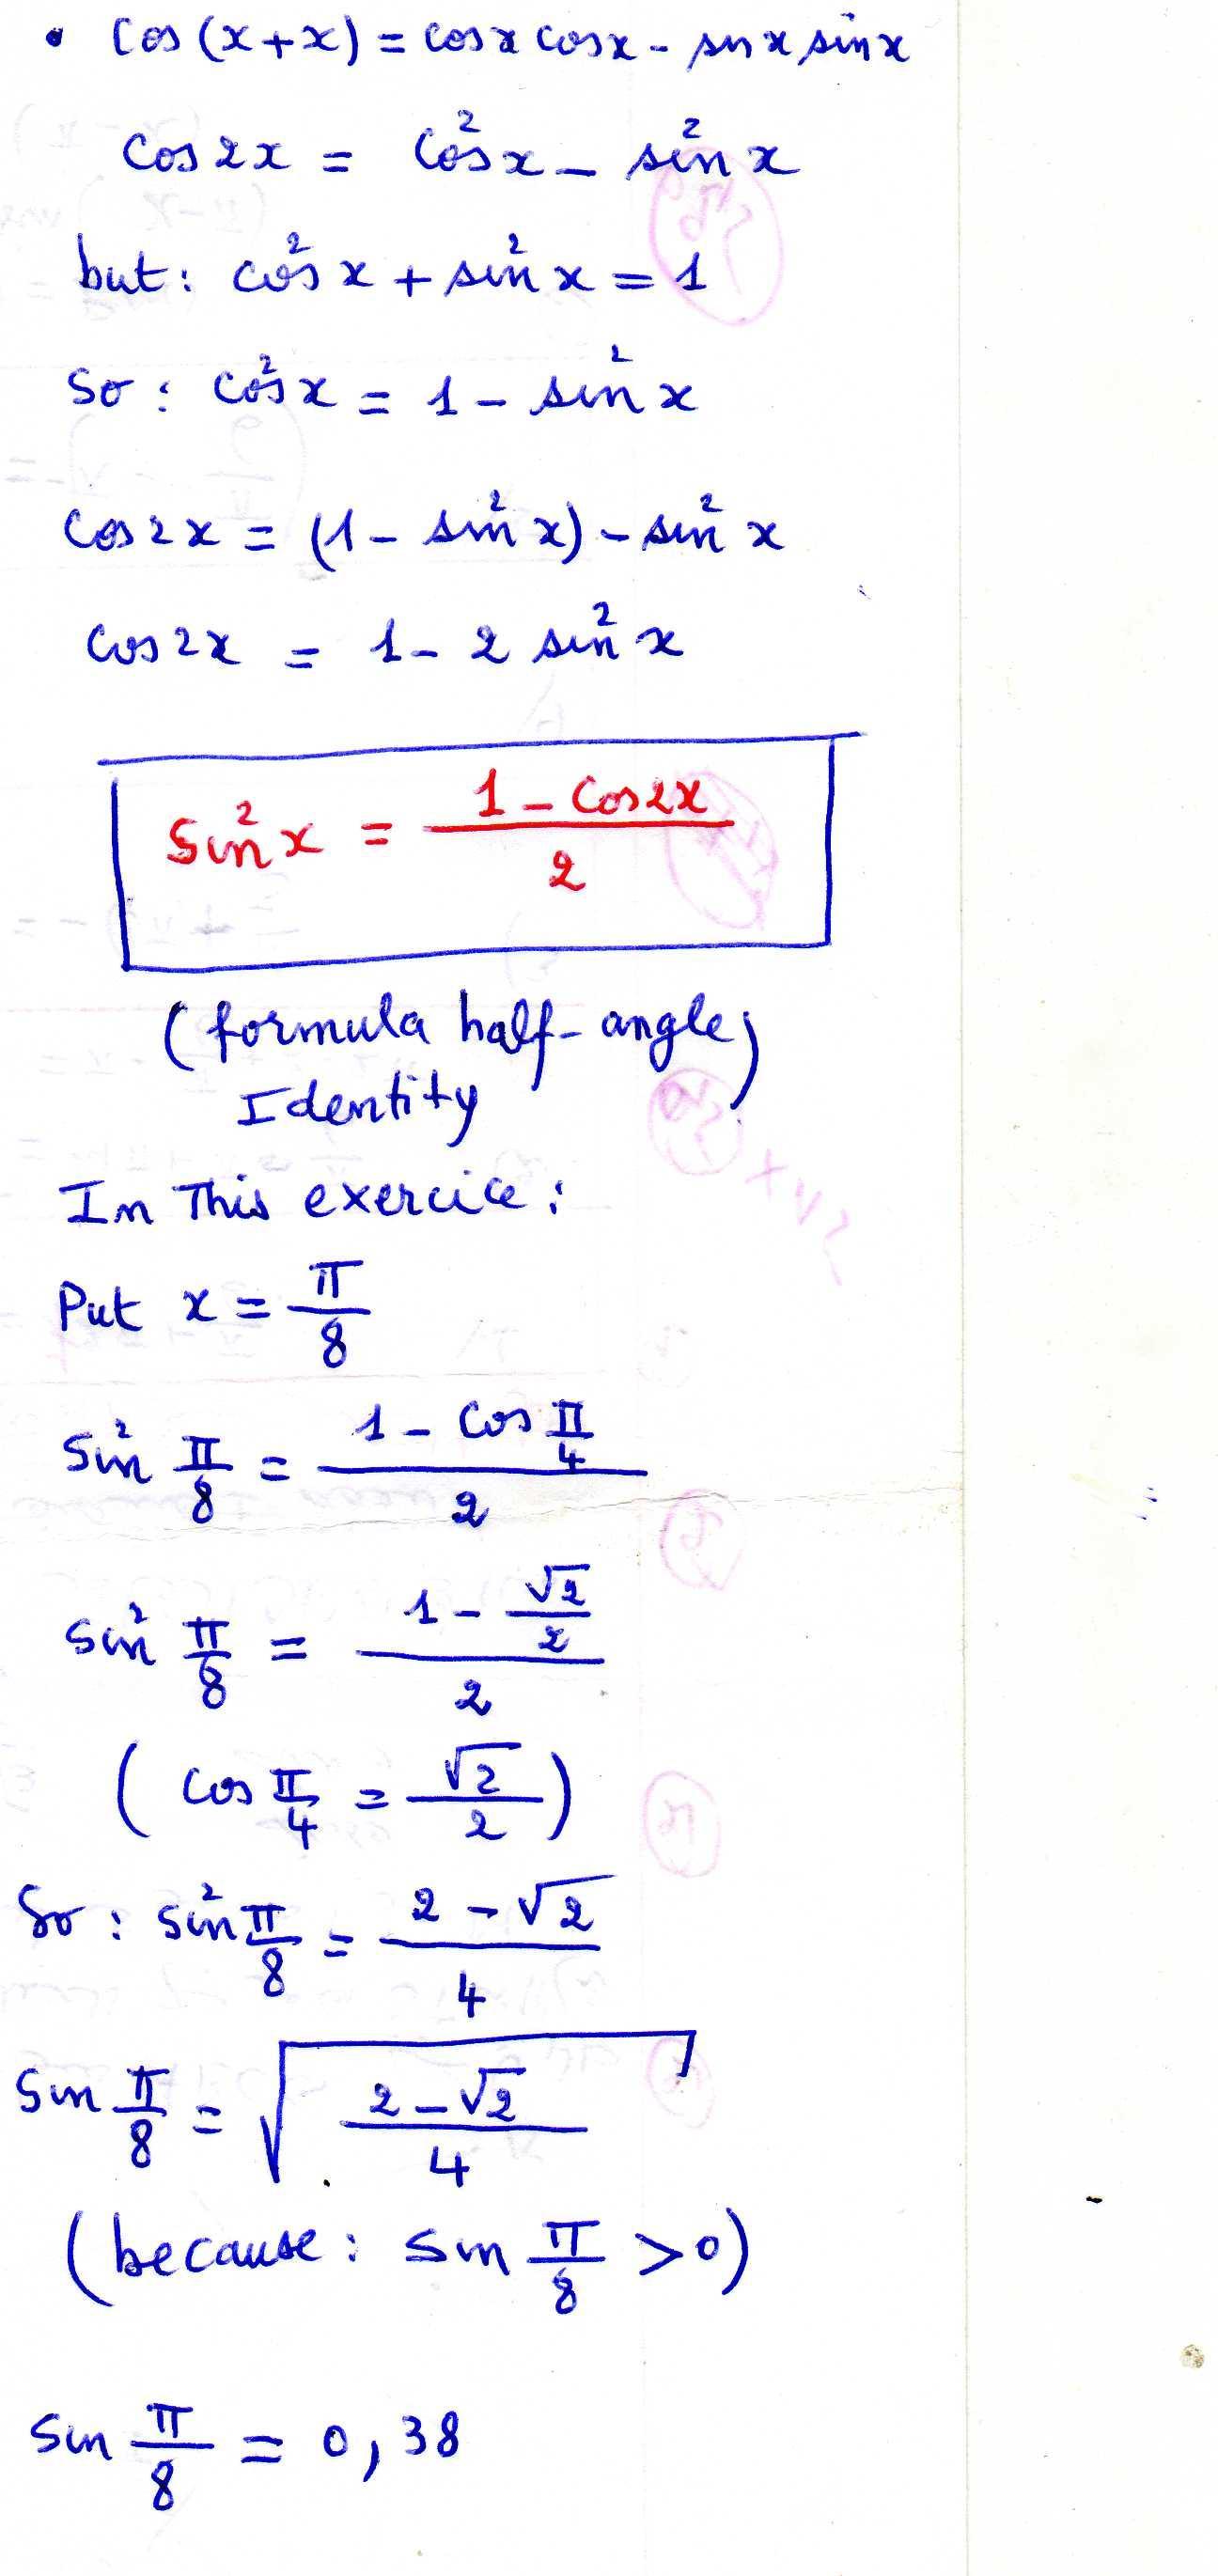 • Cos (x+x) = cosx cosx - sinx sinx
Cos 2x = Cos²x - sin²x
but: cos²x + sin²x = 1
So: cos²x = 1 - sin²x
Cos2x = (1 - sin²x) - sin²x
Cos2x = 1 - 2 sin²x
Sin²x = (1 - Cos2x)/2
(formula half-angle)
Identity
In This exercice:
Put x = π/8
Sin² π/8 = (1 - Cos π/4)/2
Sin² π/8 = (1 - √2/2)/2
(cos π/4 = √2/2)
So: sin² π/8 = (2 - √2)/4
Sin π/8 = √((2 - √2)/4)
(because: Sin π/8 > 0)
Sin π/8 = 0,38